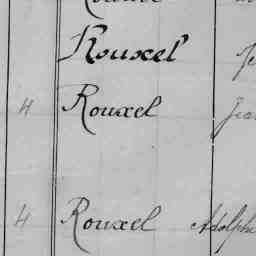 Rouxel
4 Rouxel
4 Rouxel Adolphe